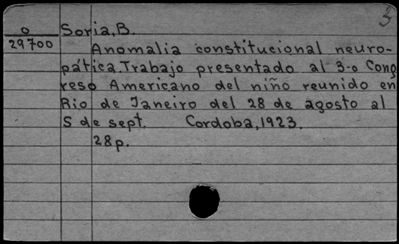 3
O Soria, B.
29700
Anomalia constitucional neuro-
pática. Trabajo presentado al 3.o Cong
reso Americano del niño reunido en
Rio de Janeiro del 28 de agosto al
5 de sept. Cordoba, 1923.
28p.